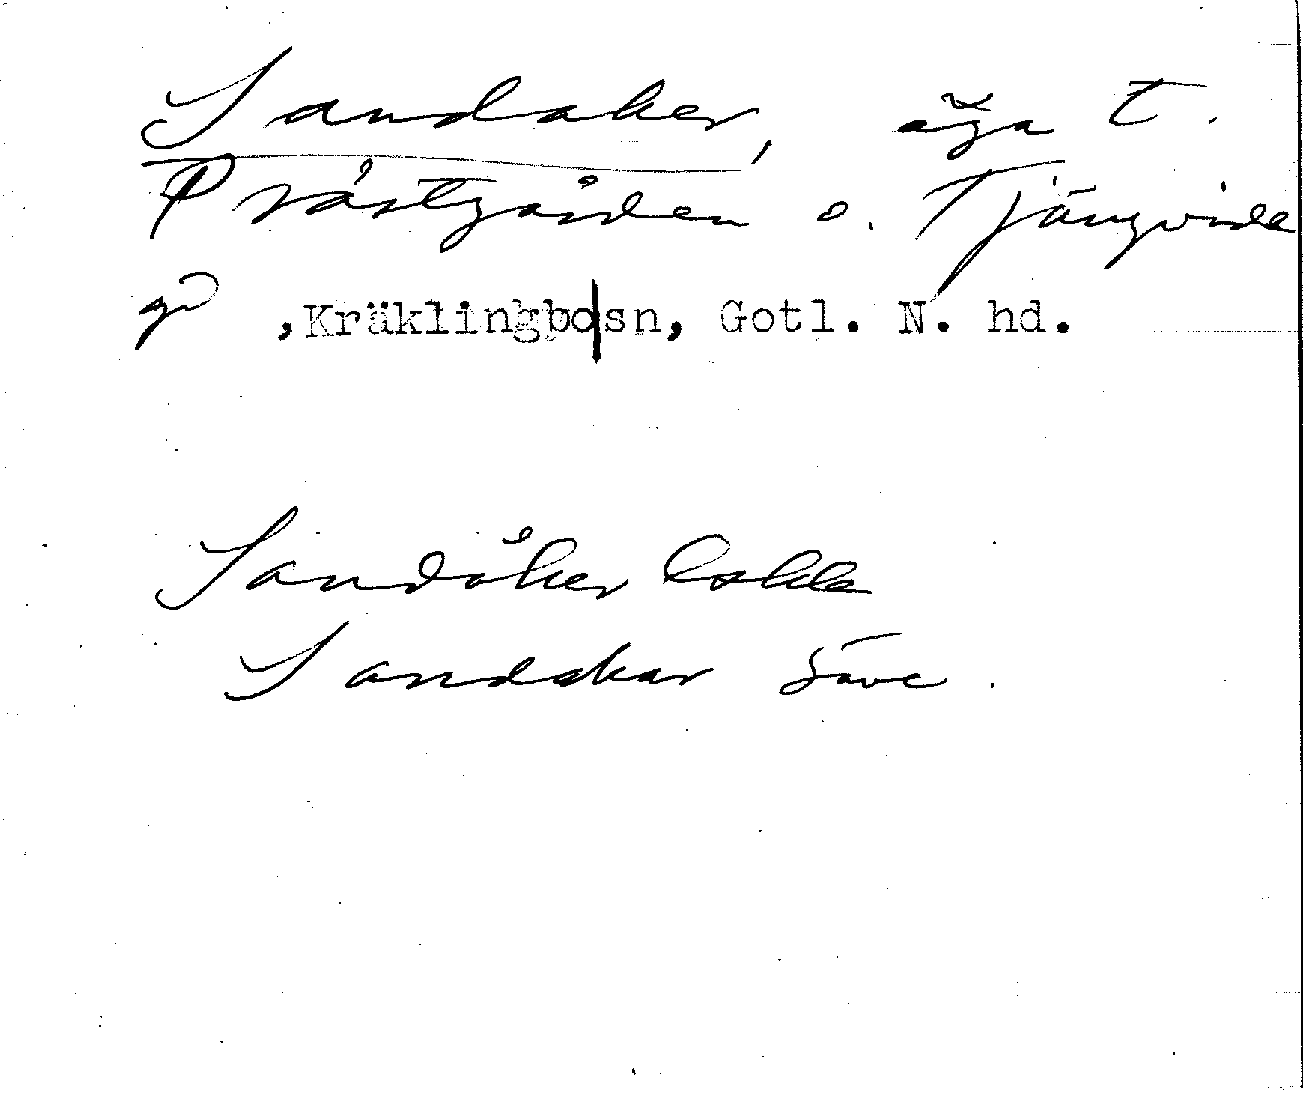 Sandaker, äga t.
Prästgården o. Tjängvide
gd ,Kräklingbo|sn, Gotl. N. hd.
Sandåker
Sandakar Säve.